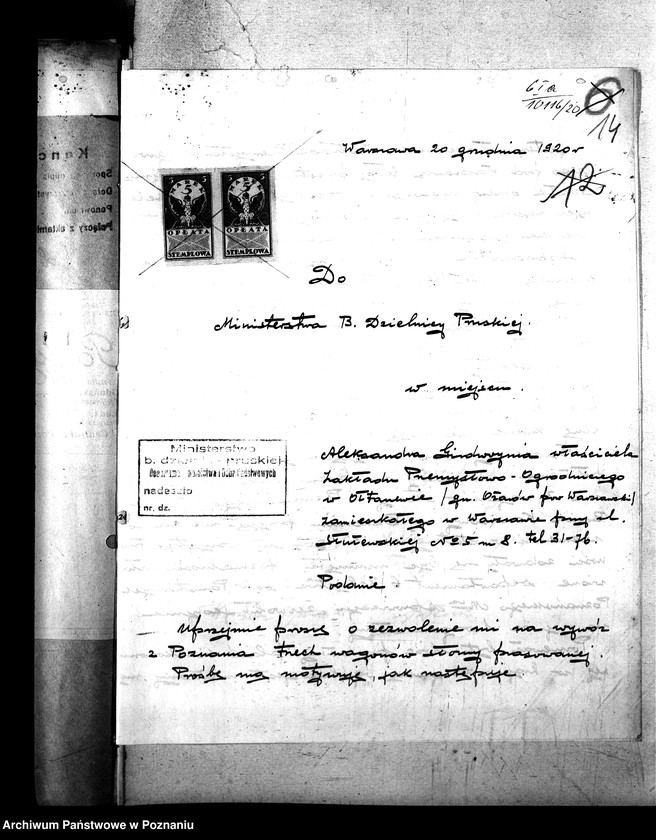 6 I a
10116/20
6
14
Warszawa 20 grudnia 1920 r
12
5 MAREK 5
OPŁATA
STEMPLOWA
5 MAREK 5
OPŁATA
STEMPLOWA
Do
Ministerstwa B. Dzielnicy Pruskiej.
w miejscu.
Ministerstwo
b. dzielnicy pruskiej
nadeszło
nr. dz.
Aleksandra właściciela
Zakładu Przemysłowo-Ogrodniczego
w Ołtarzewie /gm. Ożarów pow Warszawski/
zamieszkałego w Warszawie przy ul.
No 5 m 8. tel 31-76.
Podanie.
Uprzejmie proszę o zezwolenie mi na wywóz
z Poznania trzech wagonów słomy prasowanej.
Prośbę mą motywuję, jak następuje.
Archiwum Państwowe w Poznaniu